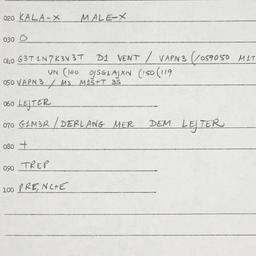 020 KALA-X MALE-X
030 0
040 G3T1N7K3V3T D1 VENT / VAPN3 (/059050 M1T
UN (100 0JSG1AJXN (150 (119
050 VAPN3 / M1 M1S+T 3S
060 LEJTER
070 G1M3R / DERLANG MER DEM LEJTER
080 +
090 TREP
100 PRE,NC+E